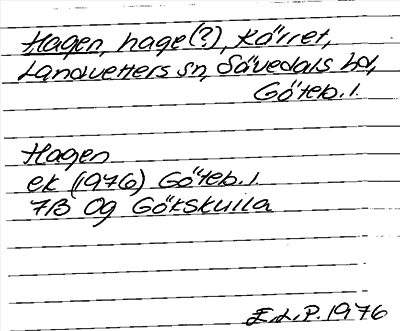 Hagen, hage(?), Kärret,
Landvetters sn, Sävedals hd,
Göteb. l.
Hagen
ek (1976) Göteb. l.
7B 0g Gökskulla
E.d.P. 1976